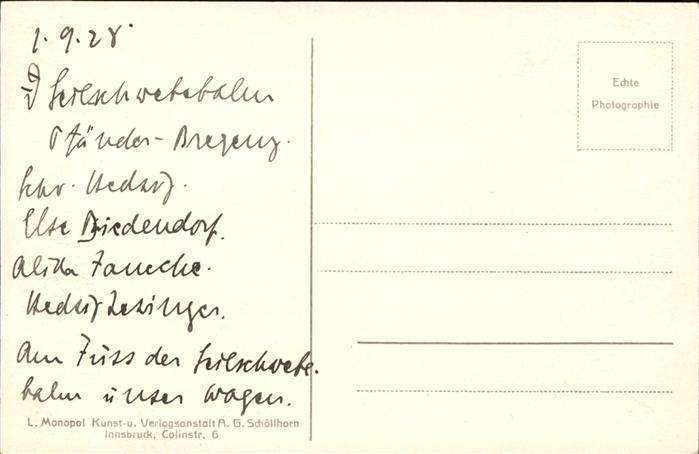 1.9.28
Seilschwebebahn
Pfänder-Bregenz.
Hedwig.
Else Biedendorf.
Alida
Hedwig
Am Fuss der Seilschwebe-
bahn unser Wagen.
L. Monopol Kunst-u. Verlagsanstalt A. G. Schöllhorn
Innsbruck, Colinstr. 6
Echte
Photographie